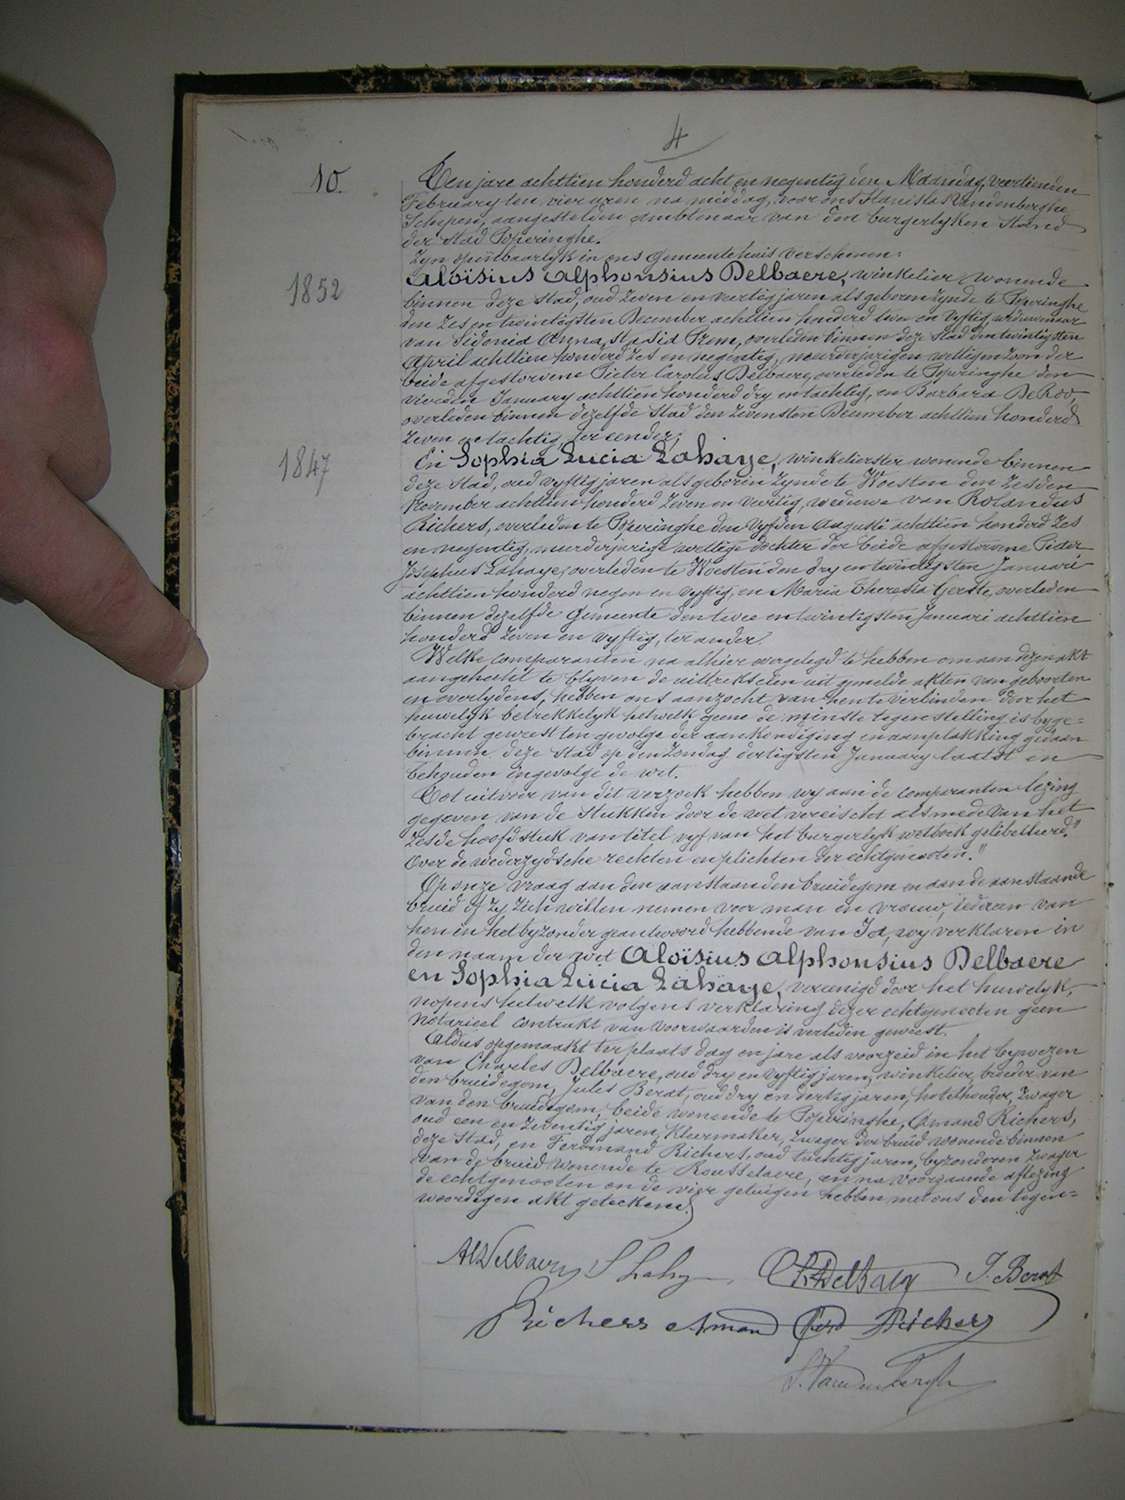 4
10.
Ten jare achttien honderd acht en negentig den Maandag, veertienden
February ten vier uren na middag, voor ons Stanislas Vandenberghe
Schepen, aangestelden ambtenaar van den burgerlyken Stand
der stad Poperinghe.
Zyn openbaarlyk in ons Gemeentehuis verschenen:
1852
Aloïsius Alphonsius Delbaere, winkelier, wonende
binnen deze stad, oud zeven en veertig jaren als geboren zynde te Poperinghe
den zes en twintigsten December achttien honderd twee en vyftig weduwenaar
van Sidonia Anna, Stasia overleden binnen deze stad den twintigsten
April achttien honderd zes en negentig, meerderjarigen wettigen zoon der
beide afgestorvene Pieter Carolus Delbaere, overleden te Poperinghe den
vierden January achttien honderd dry en tachtig, en Barbara DeRoo,
overleden binnen dezelfde stad den zevensten December achttien honderd
zeven en tachtig, ter eender;
1847
En Sophia Lucia Lahaye, winkelierster wonende binnen
deze stad, oud vyftig jaren als geboren zynde te Woesten den zesden
November achttien honderd zeven en veertig, weduwe van Rolandus
Richers, overleden te Poperinghe den vyfden Augusti achttien honderd zes
en negentig, meerderjarige wettige dochter der beide afgestorvene Pieter
Josephus Lahaye, overleden te Woesten den dry en twintigsten Januari
achttien honderd negen en vyftig, en Maria Theresia overleden
binnen dezelfde Gemeente den twee en twintigsten Januari achttien
honderd zeven en vyftig, ter ander.
Welke comparanten na alhier overgelegd te hebben om aan dezen akt
aangehecht te blyven de uittreksels uit gemelde akten van geboorten
en overlydens, hebben ons aanzocht van hen te verbinden door het
huwelyk betrekkelyk hetwelk geene de minste tegenstelling is byge=
bracht geweest ten gevolge der aankondiging en aanplakking gedaan
binnen deze stad op den Zondag dertigsten January laatst en
behouden ingevolge de wet.
Tot uitvoer van dit verzoek hebben wy aan de comparanten lezing
gegeven van de stukken door de wet vereischt alsmede van het
zesde hoofdstuk van titel vyf van het burgerlyk wetboek gelibelleerd "
Over de wederzydsche rechten en plichten der echtgenooten."
Op onze vraag aan den aanstaanden bruidegom en aan de aanstaande
bruid of zy zich willen nemen voor man en vrouw, iedereen van
hen in het byzonder geantwoord hebbende van Ja, wy verklaren in
den naam der wet Aloïsius Alphonsius Delbaere
en Sophia Lucia Lahaye, vereenigd door het huwelyk,
nopens hetwelk volgens verklaring dezer echtgenooten geen
notarieel contrakt van voorwaarden is verleden geweest.
Aldus opgemaakt ter plaats dag en jare als voorzeid in het bywezen
van Charles Delbaere, oud dry en vyftig jaren, winkelier, broeder van
den bruidegom, Jules Berat, oud dry en dertig jaren, hotelhouder, zwager
van den bruidegom, beide wonende te Poperinghe, Amand Richers,
oud een en zeventig jaren, kleermaker, zwager der bruid wonende binnen
deze stad, en Ferdinand Richers, oud tachtig jaren, byzonderen zwager
van de bruid wonende te Rousselaere, en na voorgaande aflezing
de echtgenooten en de vier getuigen hebben met ons den tegen=
woordigen akt geteekend.
Al Delbaere S Lahaye Ch Delbaere J. Berat
Richers Amand Ferd Richers
S. Vandenberghe